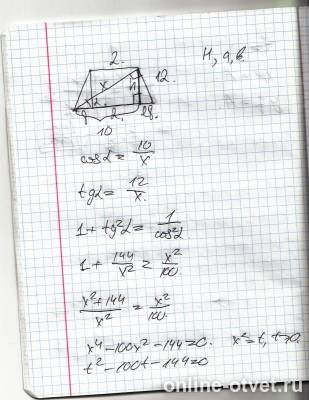 2.
H, a, b.
x
H
12.
α
8
2.
28.
10
cos α = 10/x
tg α = 12/x.
1 + tg²α = 1/cos²α
1 + 144/x² = x²/100.
x²+144/x² = x²/100.
x⁴ - 100x² - 144 = 0. x² = t, t>0.
t² - 100t - 144 = 0
online-otvet.ru